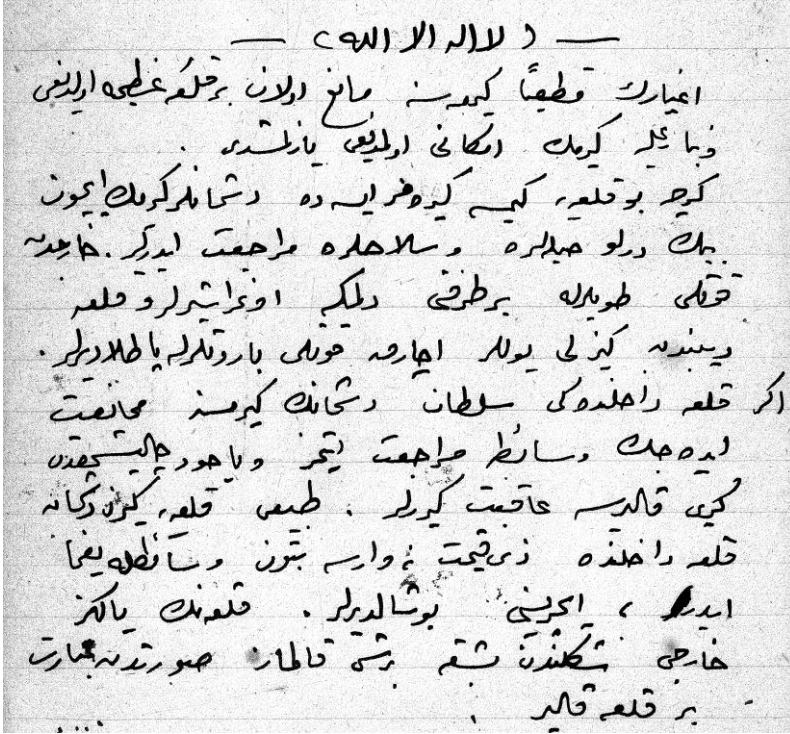 — ( لا اله الا الله ) —
اغيارك قطعياً كيرمسنه مانع اولان بر قلعهٔ عظيمه اولديغى
وبناءً عليه كيرمك امكانى اولمديغى يازلمشدى .
كرچه بو قلعه‌يه كيمسه كيره‌مز ايسه ده دشمانلر كيرمك ايچون
بيك درلو حيله‌لره وسلاحلره مراجعت ايدرلر . خارجدن
قوتلى طوپلرله بر طرفنى دلمكه اوغراشيرلر و قلعه
ديبندن كيزلى يوللر آچارق قوتلى باروتلرله پاطلاديرلر .
اكر قلعه داخلنده‌كى سلطان دشمانك كيرمسنه ممانعت
ايده‌جك وسائطه مراجعت ايتمز وياخود چاليشمقدن
كرى قاليرسه عاقبت كيررلر . طبيعى قلعه‌يه كيرن دشمان
قلعه داخلنده ذى قيمت نه وارسه بتون وسائطله يغما
ايدر ، ايچريسنى بوشالديرلر . قلعه‌نك يالكز
خارجى شكلندن بشقه بر شى قالماز صورتدن عبارت
بر قلعه قالير .